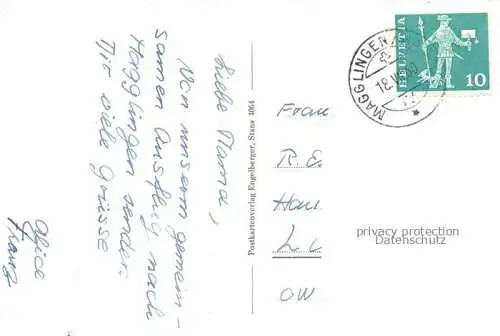 Liebe Mama,
Von unserm gemein-
samen Ausflug nach
Magglingen senden
Dir viele Grüsse
Alice
Franz
Postkartenverlag Engelberger, Stans 4064
HELVETIA
10
MAGGLINGEN
18.
Frau
R. E.
OW
privacy protection
Datenschutz